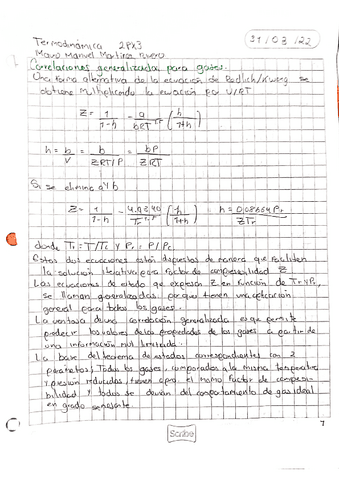 Termodinámica 2PX3
31/03/22
Mauro Manuel Martinez Rivero
Correlaciones generalizada para gases.
Una forma alternativa de la ecuación de Redlich/Kwong se
obtiene multiplicando la ecuación por V/RT
Z = 1/(1-h) - a/(bRT^1.5) (h/(1+h))
h = b/V = b/(ZRT/P) = bP/ZRT
Si se elimina a y b
Z = 1/(1-h) - 4.9340/Tr^1.5 (h/(1+h)) h = 0.08664Pr/ZTr
donde Tr = T/Tc y Pr = P/Pc
Estas dos ecuaciones están dispuestas de manera que faciliten
la solución iterativa para factor de compresibilidad Z
Las ecuaciones de estado que expresan Z en función de Tr y Pr,
se llaman generalizadas porque tienen una aplicación
general para todos los gases.
La ventaja de una correlación generalizada es que permite
predecir los valores de las propiedades de los gases a partir de
una información muy limitada.
La base del teorema de estados correspondientes con 2
parámetros; Todos los gases, comparados a la misma temperatura
y presión reducidas, tienen aprox el mismo factor de compresi-
bilidad y todos se desvían del comportamiento de gas ideal
en grado semejante
Scribe